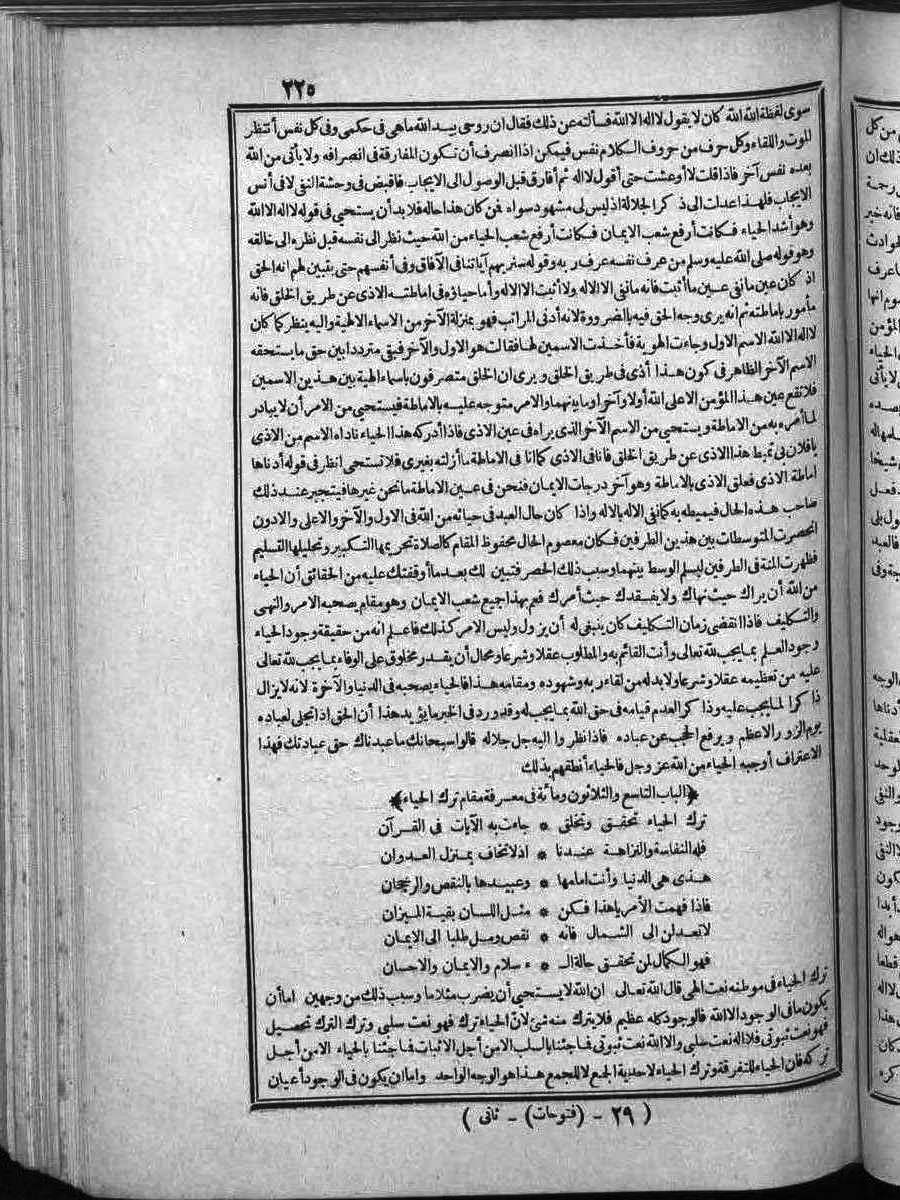 ٢٢٥
سوى لفظة الله الله كان لا يقول لا اله الا الله فسألته عن ذلك فقال ان روحى بيد الله ماهى فى حكمى وفى كل نفس أنتظر
الموت واللقاء وكل حرف من حروف الكلام نفس فيمكن اذا انصرف أن تكون المفارقة فى انصرافه ولا يأتى من الله
بعده نفس آخر فاذا قلت لا أو عشت حتى أقول لا اله ثم أفارق قبل الوصول الى الايجاب فاقبض فى وحشة النفى لا فى أنس
الايجاب فلهذا عدلت الى ذكر الجلالة اذ ليس لى مشهود سواه فمن كان هذا حاله فلا بد أن يستحيى فى قوله لا اله الا الله
وهو أشد الحياء فكانت أرفع شعب الايمان فكانت أرفع شعب الحياء من الله حيث نظر الى نفسه قبل نظره الى خالقه
وهو قوله صلى الله عليه وسلم من عرف نفسه عرف ربه وقوله سنريهم آياتنا فى الآفاق وفى أنفسهم حتى يتبين لهم انه الحق
اذ كان عين ما نفى عين ما أثبت فانه ما نفى الا الاله ولا أثبت الا الاله وأما حياؤه فى اماطته الاذى عن طريق الخلق فانه
مأمور باماطته ثم انه يرى وجه الحق فيه بالضرورة لانه أدنى المراتب فهو بمنزلة الآخر من الاسماء الالهية واليه ينظر كما كان
لا اله الا الله الاسم الاول وجاءت الهوية فأخذت الاسمين لها فقالت هو الاول والآخر فبقى مترددا بين حق ما يستحقه
الاسم الآخر الظاهر فى كون هذا أذى فى طريق الخلق ويرى ان الخلق متصرفون باسماء الهية بين هذين الاسمين
فلا تقع عين هذا المؤمن الا على الله أولا وآخرا وما بينهما والامر متوجه عليه بالاماطة فيستحيى من الامر أن لا يبادر
لما أمره به من الاماطة ويستحيى من الاسم الآخر الذى يراه فى عين الاذى فاذا أدركه هذا الحياء ناداه الاسم من الاذى
يا فلان بى تميط هذا الاذى عن طريق الخلق فانا فى الاذى كما انا فى الاماطة ما أزلته بغيرى فلا تستحى انظر فى قوله أدناها
اماطة الاذى فعلق الاذى بالاماطة وهو آخر درجات الايمان فنحن فى عين الاماطة ما نحن غيرها فيتجبر عند ذلك
صاحب هذه الحال فيميطه به كما نفى الاله بالاله واذا كان حال العبد فى حيائه من الله فى الاول والآخر والاعلى والادون
انحصرت المتوسطات بين هذين الطرفين فكان معصوم الحال محفوظ المقام كالصلاة تحريمها التكبير وتحليلها التسليم
فظهرت المنة فى الطرفين ليسلم الوسط بينهما وسبب ذلك الحصر فتبين لك بعد ما أوقفتك عليه من الحقائق أن الحياء
من الله أن يراك حيث نهاك ولا يفقدك حيث أمرك فعم بهذا جميع شعب الايمان وهو مقام يصحبه الامر والنهى
والتكليف فاذا انقضى زمان التكليف كان ينبغى له أن يزول وليس الامر كذلك فاعلم انه من حقيقة وجود الحياء
وجود العلم بما يجب لله تعالى وأنت القائم به والمطلوب عقلا وشرعا ومحال أن يقدر مخلوق على الوفاء بما يجب لله تعالى
عليه من تعظيمه عقلا وشرعا ولا بد له من لقاء ربه وشهوده ومقامه هذا فالحياء يصحبه فى الدنيا والآخرة لانه لا يزال
ذاكرا لما يجب عليه وذاكرا لعدم قيامه فى حق الله بما يجب له وقد ورد فى الخبر ما يؤيد هذا أن الحق اذا تجلى لعباده
يوم الزور الاعظم ويرفع الحجب عن عباده فاذا نظروا اليه جل جلاله قالوا سبحانك ما عبدناك حق عبادتك فهذا
الاعتراف أوجبه الحياء من الله عز وجل فالحياء أنطقهم بذلك
﴿الباب التاسع والثلاثون ومائة فى معرفة مقام ترك الحياء﴾
ترك الحياء تحقق وتخلق * جاءت به الآيات فى القرآن
فله النفاسة والنزاهة عندنا * اذ لا تخاف بمنزل العدوان
هذى هى الدنيا وأنت امامها * وعبيدها بالنقص والرجحان
فاذا فهمت الأمر يا هذا فكن * مثل اللسان بقية الميزان
لا تعدلن الى الشمال فانه * نقص ومل طلبا الى الايمان
فهو الكمال لمن تحقق حالة الـ * ـسلام والايمان والاحسان
ترك الحياء فى موطنه نعت الهى قال الله تعالى ان الله لا يستحيى أن يضرب مثلا ما وسبب ذلك من وجهين اما أن
يكون ما فى الوجود الا الله فالوجود كله عظيم فلا يترك منه شئ لأن الحياء ترك فهو نعت سلبى وترك الترك تحصيل
فهو نعت ثبوتى فلا اله نعت سلبى والا الله نعت ثبوتى فما جئنا بالسلب الا من أجل الاثبات فما جئنا بالحياء الا من أجل
تركه فان الحياء للتفرقة وترك الحياء لاحدية الجمع لا للجمع هذا هو الوجه الواحد واما ان يكون فى الوجود أعيان
( ٢٩ - (فتوحات) - ثانى )